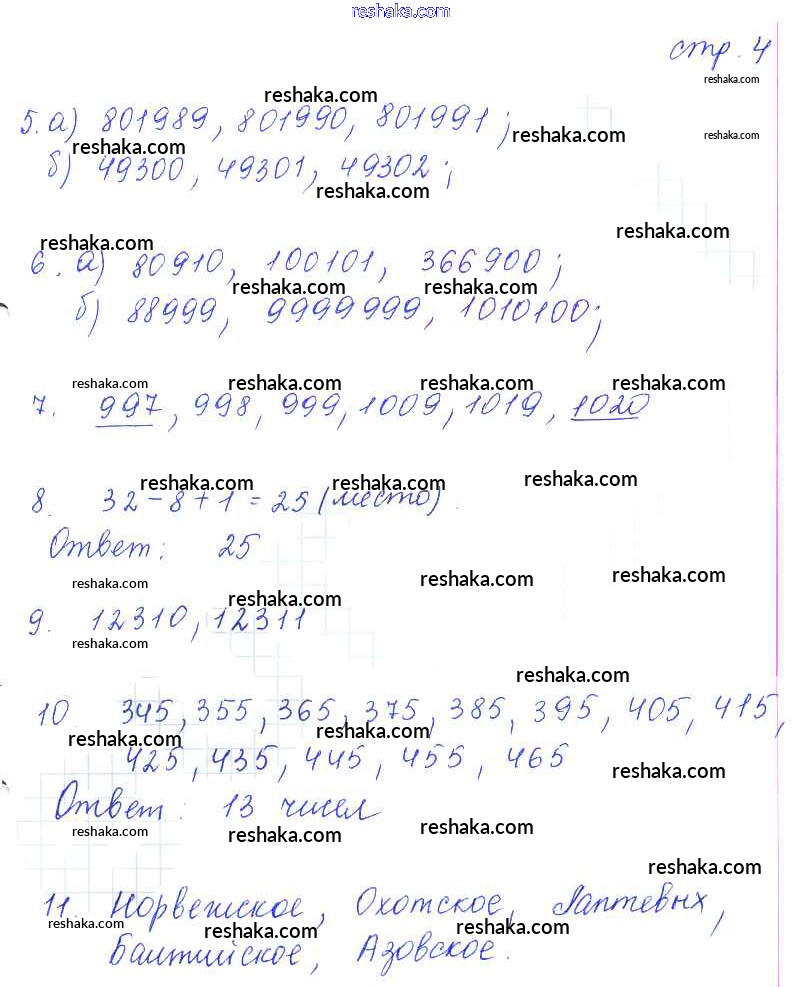 reshaka.com
стр. 4
reshaka.com
reshaka.com
5. а) 801989, 801990, 801991;
reshaka.com
reshaka.com
reshaka.com
б) 49300, 49301, 49302;
reshaka.com
reshaka.com
reshaka.com
6. а) 80910, 100101, 366900;
reshaka.com
reshaka.com
б) 88999, 9999999, 1010100;
reshaka.com
reshaka.com
reshaka.com
reshaka.com
7. 997, 998, 999, 1009, 1019, 1020
reshaka.com
reshaka.com
reshaka.com
8. 32 - 8 + 1 = 25 (место).
Ответ: 25
reshaka.com
reshaka.com
reshaka.com
reshaka.com
9. 12310, 12311
reshaka.com
reshaka.com
10 345, 355, 365, 375, 385, 395, 405, 415,
reshaka.com
reshaka.com
425, 435, 445, 455, 465
reshaka.com
Ответ: 13 чисел
reshaka.com
reshaka.com
reshaka.com
reshaka.com
11. Норвежское, Охотское, Лаптевых,
reshaka.com
reshaka.com
reshaka.com
Балтийское, Азовское.